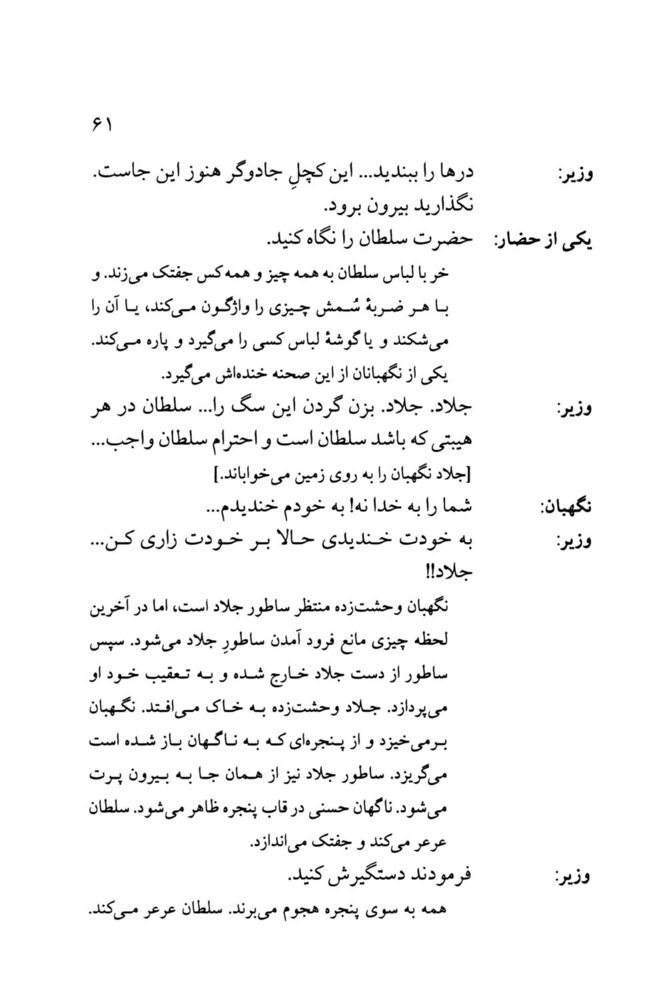 ۶۱
وزیر: درها را ببندید... این کچلِ جادوگر هنوز این جاست.
نگذارید بیرون برود.
یکی از حضار: حضرت سلطان را نگاه کنید.
خر با لباس سلطان به همه چیز و همه‌کس جفتک می‌زند. و
بـا هـر ضـربهٔ سُـمش چـیزی را واژگـون مـی‌کند، یـا آن را
می‌شکند و یا گوشهٔ لباس کسی را می‌گیرد و پاره مـی‌کند.
یکی از نگهبانان از این صحنه خنده‌اش می‌گیرد.
وزیر: جلاد. جلاد. بزن گردن این سگ را... سلطان در هر
هیبتی که باشد سلطان است و احترام سلطان واجب...
[جلاد نگهبان را به روی زمین می‌خواباند.]
نگهبان: شما را به خدا نه! به خودم خندیدم...
وزیر: به خودت خـندیدی حـالا بـر خـودت زاری کـن...
جلاد!!
نگهبان وحشت‌زده منتظر ساطور جلاد است، اما در آخرین
لحظه چیزی مانع فرود آمدن ساطورِ جلاد می‌شود. سپس
ساطور از دست جلاد خـارج شـده و بـه تـعقیب خـود او
می‌پردازد. جـلاد وحشت‌زده بـه خـاک مـی‌افـتد. نگـهبان
بـرمی‌خیزد و از پـنجره‌ای کـه بـه نـاگـهان بـاز شـده است
می‌گریزد. ساطور جلاد نیز از هـمان جـا بـه بـیرون پـرت
می‌شود. ناگهان حسنی در قاب پنجره ظاهر می‌شود. سلطان
عرعر می‌کند و جفتک می‌اندازد.
وزیر: فرمودند دستگیرش کنید.
همه به سوی پنجره هجوم می‌برند. سلطان عرعر مـی‌کند.